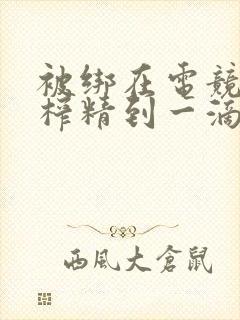 被绑在電競
榨精到一滴
西風大倉鼠